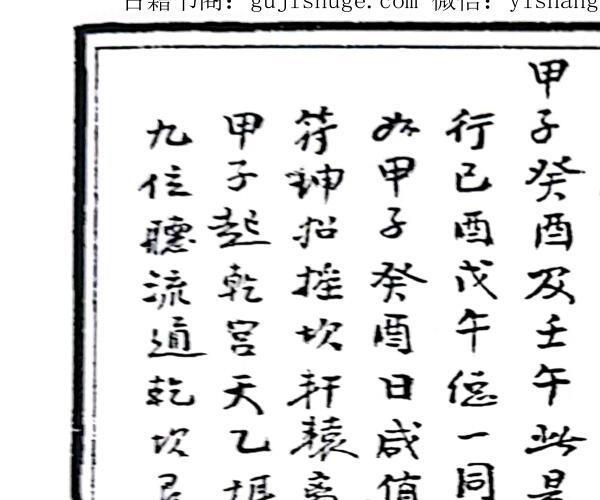 古籍书商：gujishuge.com 微信：yishang
甲子癸酉及壬午此是
行已酉戊午德一同
如甲子癸酉日咸值
符 招摇坎轩辕离
甲子起乾宫天乙
九位聽流道乾坎艮